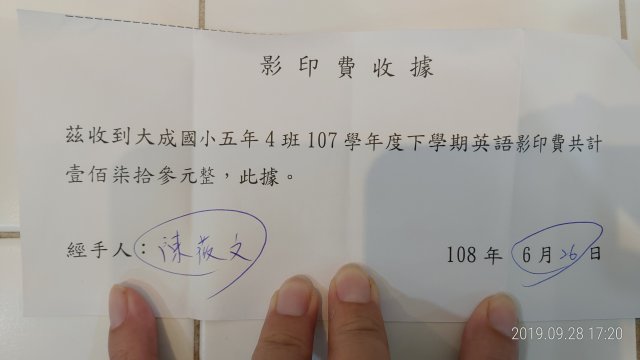 影印費收據
茲收到大成國小五年4班107學年度下學期英語影印費共計
壹佰柒拾參元整，此據。
經手人：陳薇文
108 年 6月26日
2019.09.28 17:20